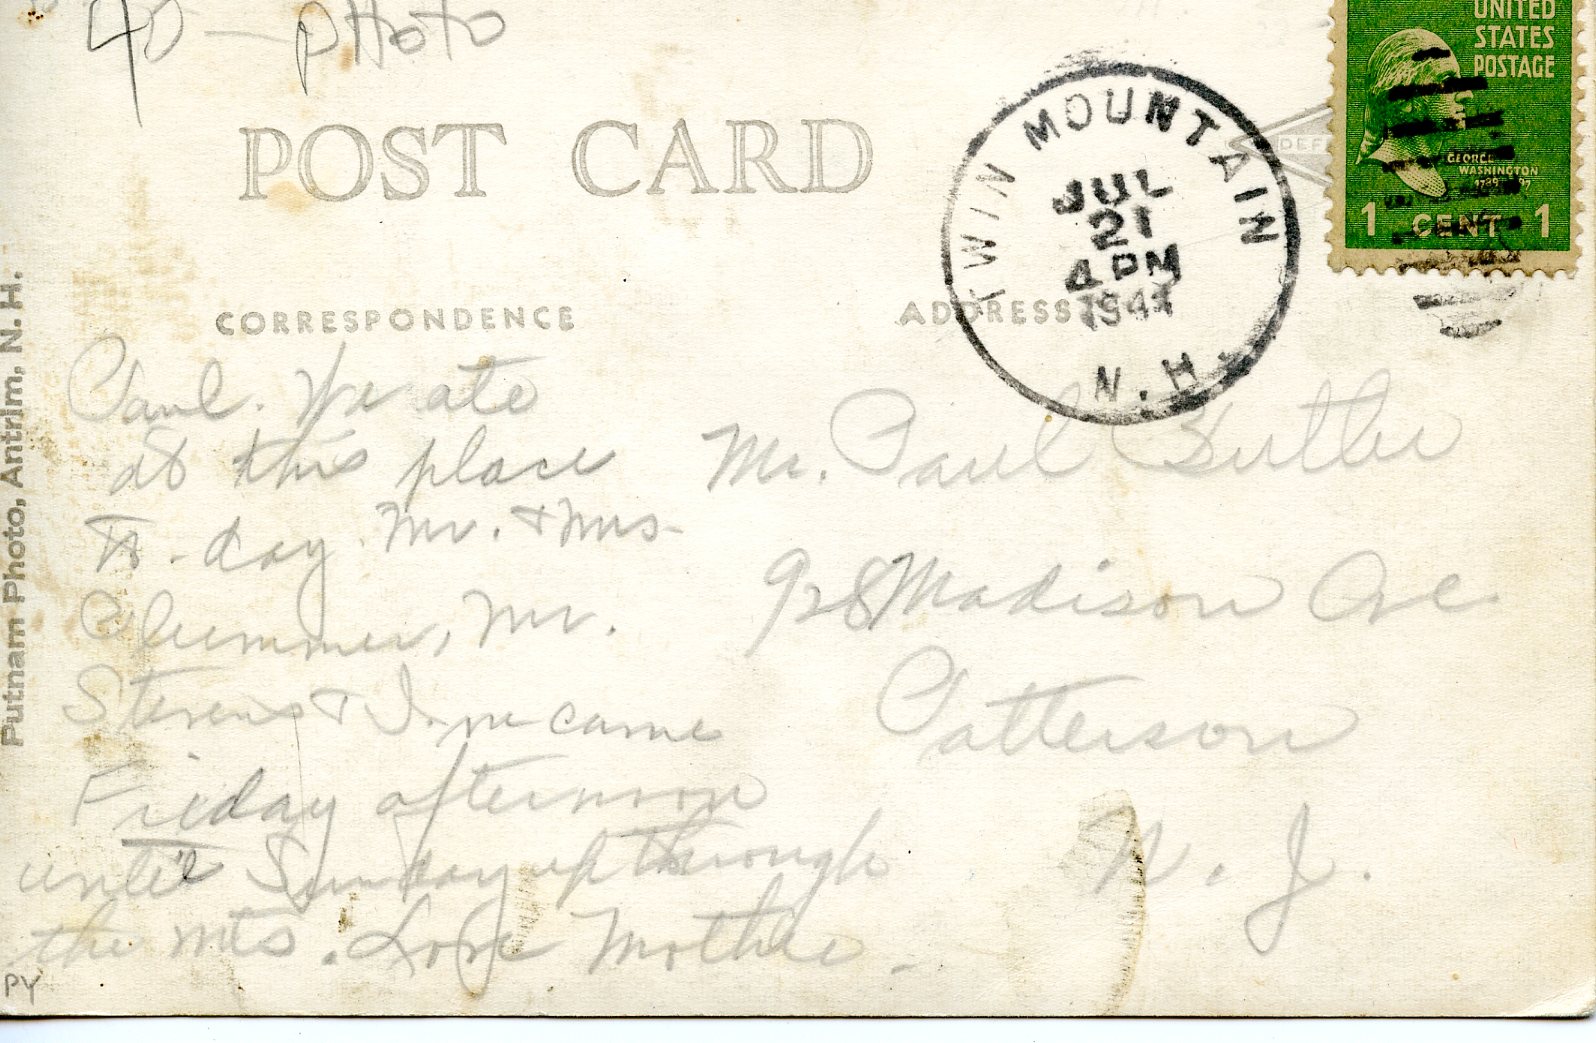 40 — photo
UNITED
STATES
POSTAGE
GEORGE
WASHINGTON
1789 1797
1 CENT 1
POST CARD
TWIN MOUNTAIN
JUL
21
4 PM
1941
N.H.
DEF
CORRESPONDENCE
ADDRESS
Paul. We ate
at this place
to-day. Mr. & Mrs.
Plummer, Mr.
Stevens & I. we came
Friday afternoon
until Sunday up through
the mts. Love Mother
Mr. Paul Butler
928 Madison Ave
Patterson
N. J.
Putnam Photo, Antrim, N. H.
PY